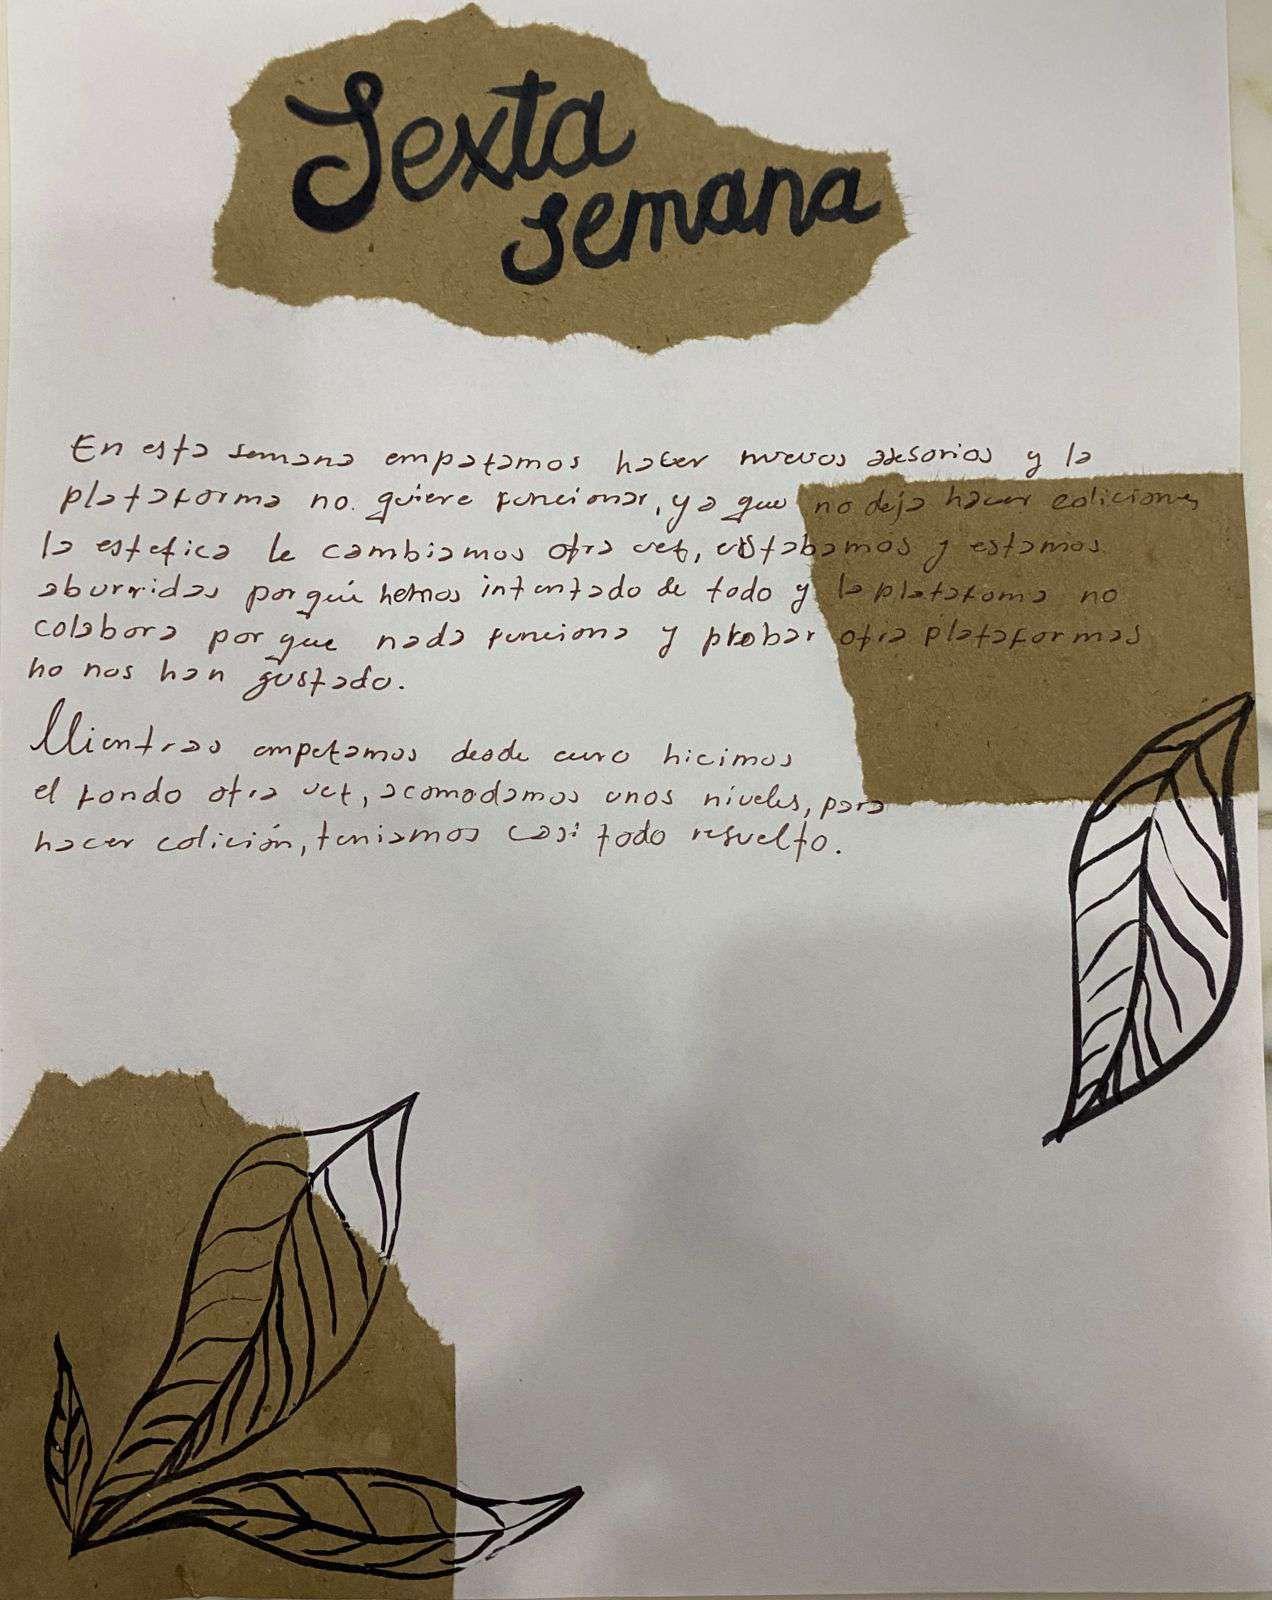 Sexta
semana
En esta semana empatamos hacer nuevos asesorios y la
plataforma no. quiere funcionar, ya que no deja hacer coliciones
la estetica le cambiamos otra vez, estabamos y estamos
aburridas porqúe hemos intentado de todo y la plataforma no
colabora por que nada funciona y probar otra plataformas
no nos han gustado.
Mientras empetamos desde cero hicimos
el fondo otra vez, acomodamos unos niveles, para
hacer colición, teniamos casi todo resuelto.